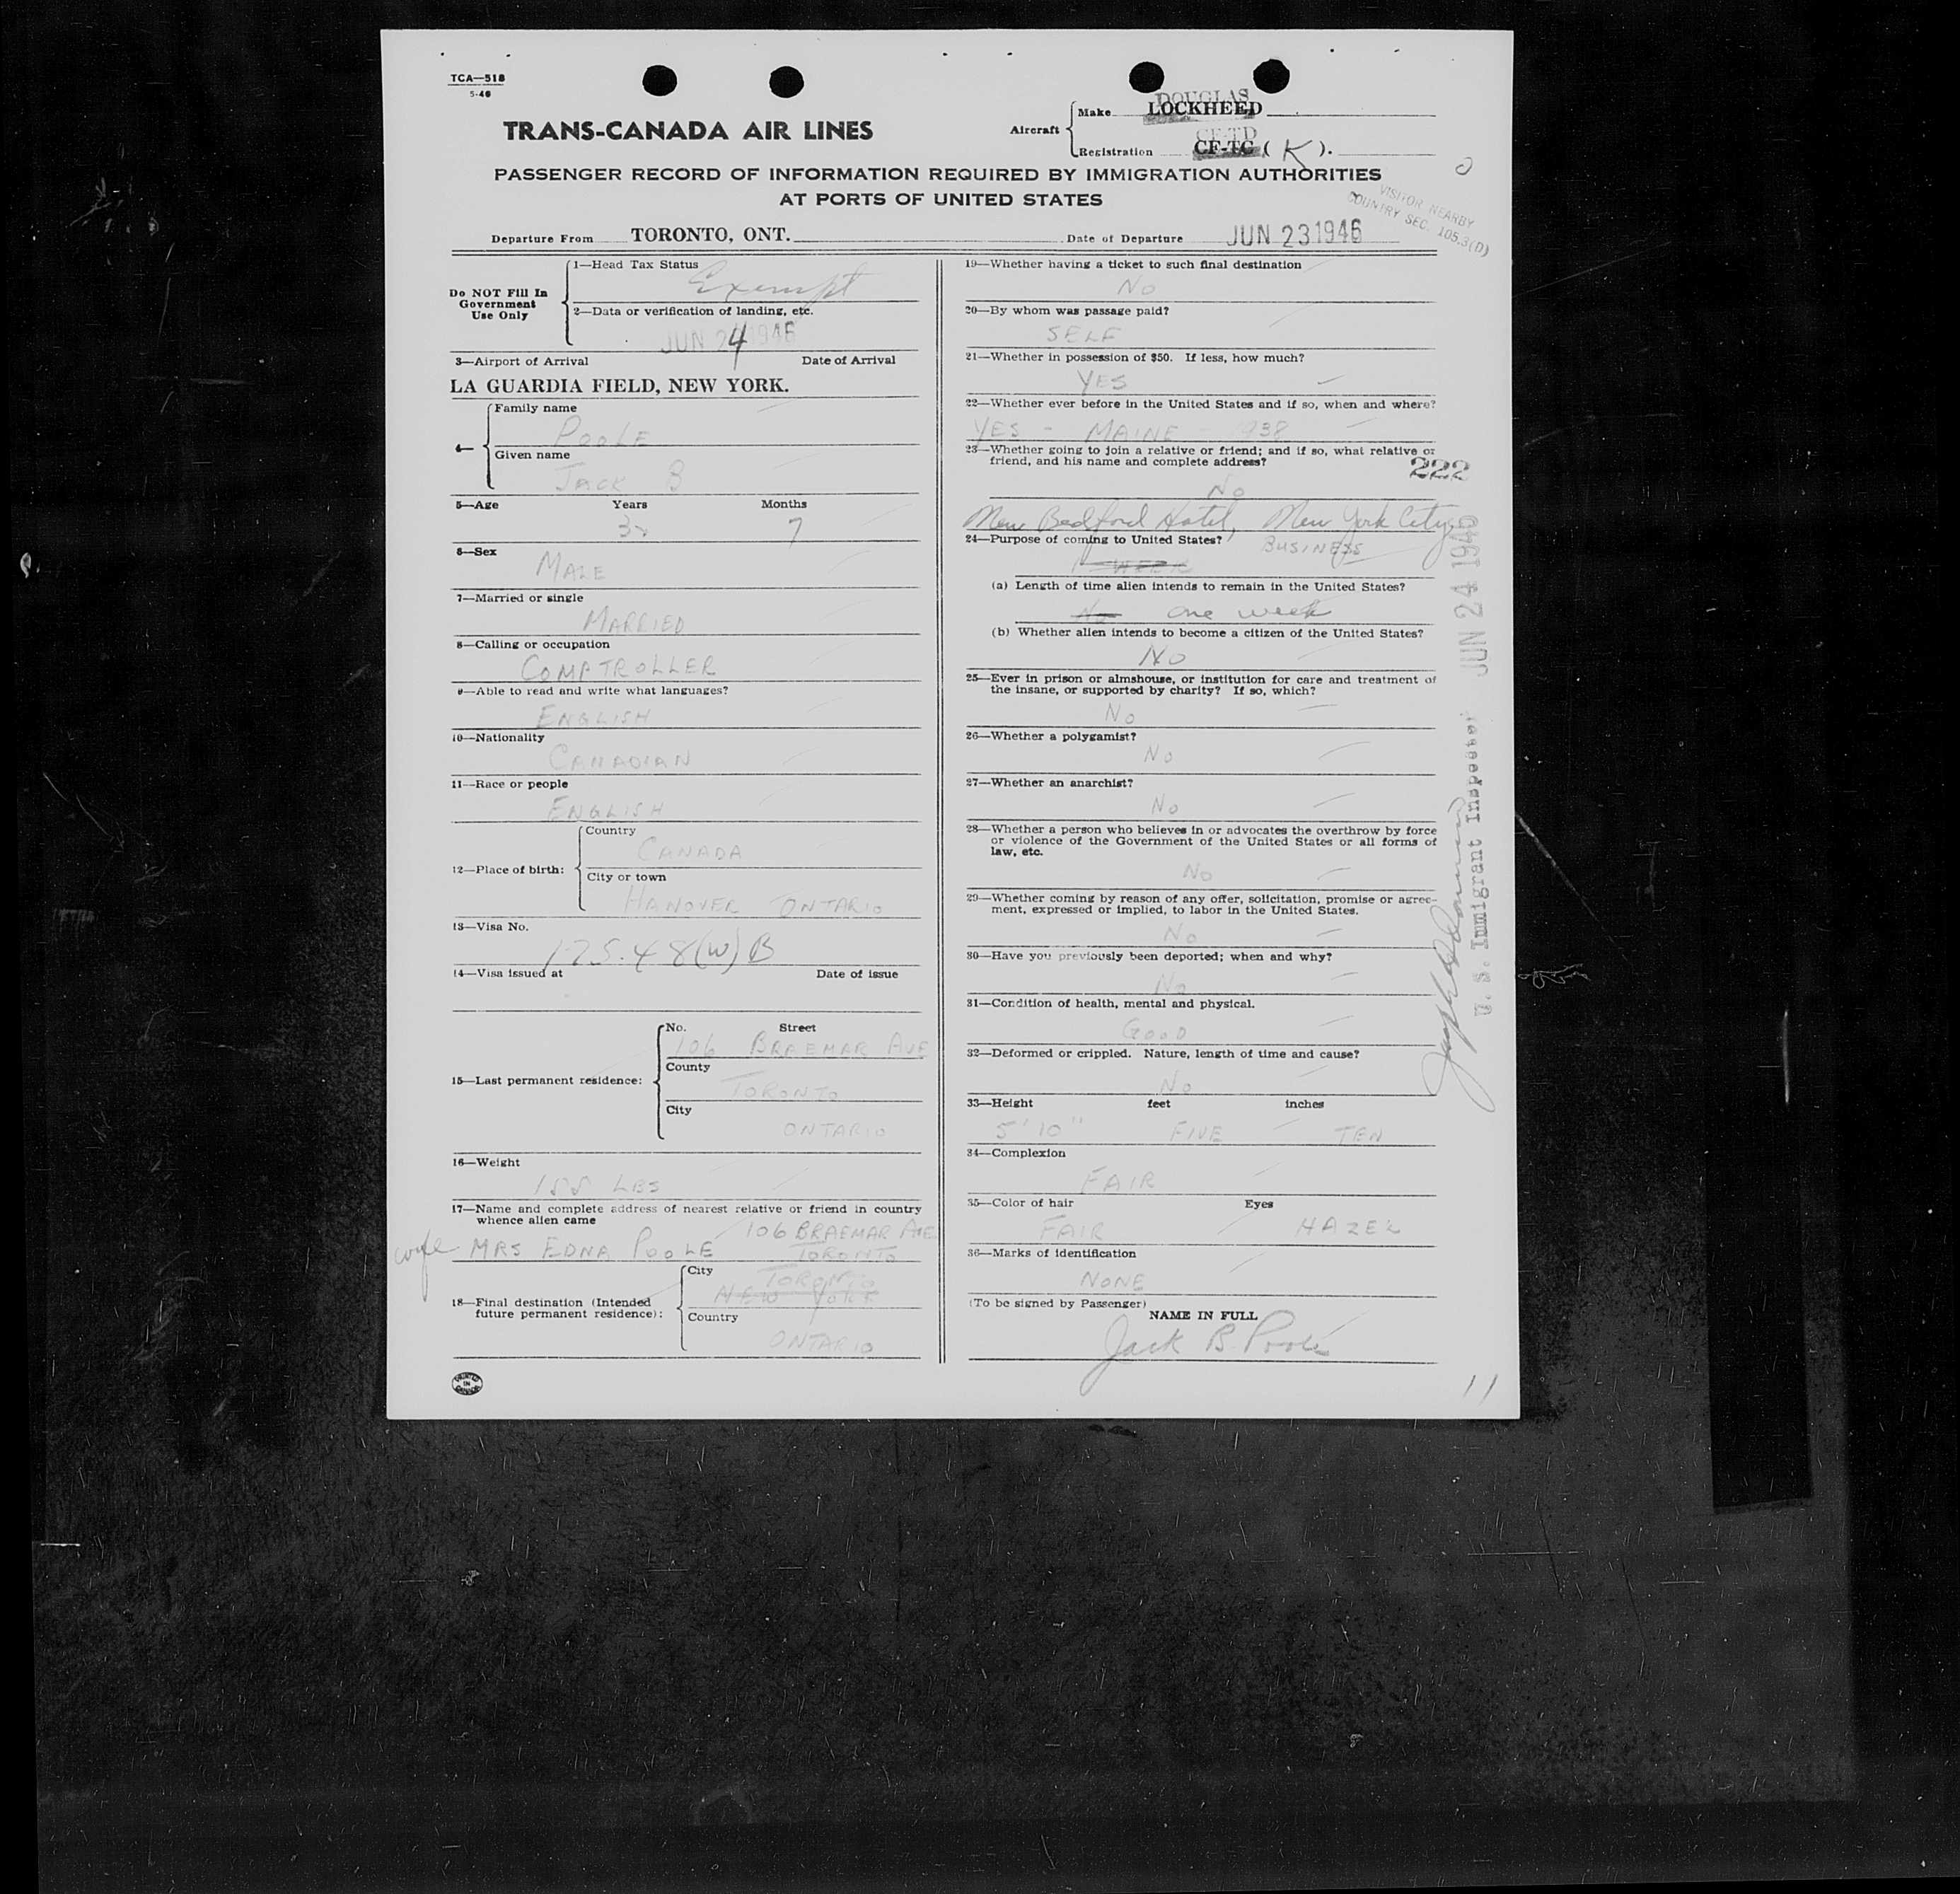 TCA—518
5-46
TRANS-CANADA AIR LINES
Aircraft
Make DOUGLAS
LOCKHEED
Registration CF-TD
CF-TC ( K ).
PASSENGER RECORD OF INFORMATION REQUIRED BY IMMIGRATION AUTHORITIES
AT PORTS OF UNITED STATES
VISITOR NEARBY
COUNTRY SEC. 105.3(D)
Departure From TORONTO, ONT. Date of Departure JUN 23 1946
Do NOT Fill In
Government
Use Only
1—Head Tax Status
Exempt
2—Data or verification of landing, etc.
JUN 24 1946
3—Airport of Arrival Date of Arrival
LA GUARDIA FIELD, NEW YORK.
4—
Family name
POOLE
Given name
JACK B
5—Age Years Months
7
6—Sex
MALE
7—Married or single
MARRIED
8—Calling or occupation
COMPTROLLER
9—Able to read and write what languages?
ENGLISH
10—Nationality
CANADIAN
11—Race or people
ENGLISH
12—Place of birth:
Country
CANADA
City or town
HANOVER ONTARIO
13—Visa No.
175.48(W)B
14—Visa issued at Date of issue
15—Last permanent residence:
No. Street
106 BRAEMAR AVE
County
TORONTO
City
ONTARIO
16—Weight
155 LBS
17—Name and complete address of nearest relative or friend in country
whence alien came
106 BRAEMAR AVE
wife MRS EDNA POOLE TORONTO
18—Final destination (Intended
future permanent residence):
City
TORONTO
NEW YORK
Country
ONTARIO
PRINTED
IN
CANADA
19—Whether having a ticket to such final destination
NO
20—By whom was passage paid?
SELF
21—Whether in possession of $50. If less, how much?
YES
22—Whether ever before in the United States and if so, when and where?
YES - MAINE - 1938
23—Whether going to join a relative or friend; and if so, what relative or
friend, and his name and complete address?
222
NO
New Bedford Hotel, New York City
24—Purpose of coming to United States? BUSINESS
1 WEEK
(a) Length of time alien intends to remain in the United States?
No one week
(b) Whether alien intends to become a citizen of the United States?
No
25—Ever in prison or almshouse, or institution for care and treatment of
the insane, or supported by charity? If so, which?
NO
26—Whether a polygamist?
NO
27—Whether an anarchist?
NO
28—Whether a person who believes in or advocates the overthrow by force
or violence of the Government of the United States or all forms of
law, etc.
NO
29—Whether coming by reason of any offer, solicitation, promise or agree-
ment, expressed or implied, to labor in the United States.
NO
30—Have you previously been deported; when and why?
NO
31—Condition of health, mental and physical.
GOOD
32—Deformed or crippled. Nature, length of time and cause?
NO
33—Height feet inches
5' 10" FIVE TEN
34—Complexion
FAIR
35—Color of hair Eyes
FAIR HAZEL
36—Marks of identification
NONE
(To be signed by Passenger)
NAME IN FULL
Jack B. Poole
11
JUN 24 1946
U. S. Immigrant Inspector